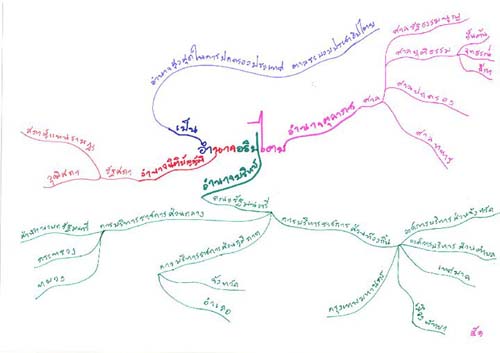 อำนาจอธิปไตย
เป็น
อำนาจสูงสุดในการปกครองประเทศ ตามระบอบประชาธิปไตย
อำนาจตุลาการ
ศาล
ศาลรัฐธรรมนูญ
ศาลยุติธรรม
ชั้นต้น
อุทธรณ์
ฎีกา
ศาลปกครอง
ศาลทหาร
อำนาจนิติบัญญัติ
รัฐสภา
สภาผู้แทนราษฎร
วุฒิสภา
อำนาจบริหาร
คณะรัฐมนตรี
การบริหารราชการส่วนกลาง
สำนักนายกรัฐมนตรี
กระทรวง
ทบวง
การบริหารราชการส่วนภูมิภาค
จังหวัด
อำเภอ
การบริหารราชการส่วนท้องถิ่น
องค์การบริหารส่วนจังหวัด
องค์การบริหารส่วนตำบล
เทศบาล
เมืองพัทยา
กรุงเทพมหานคร